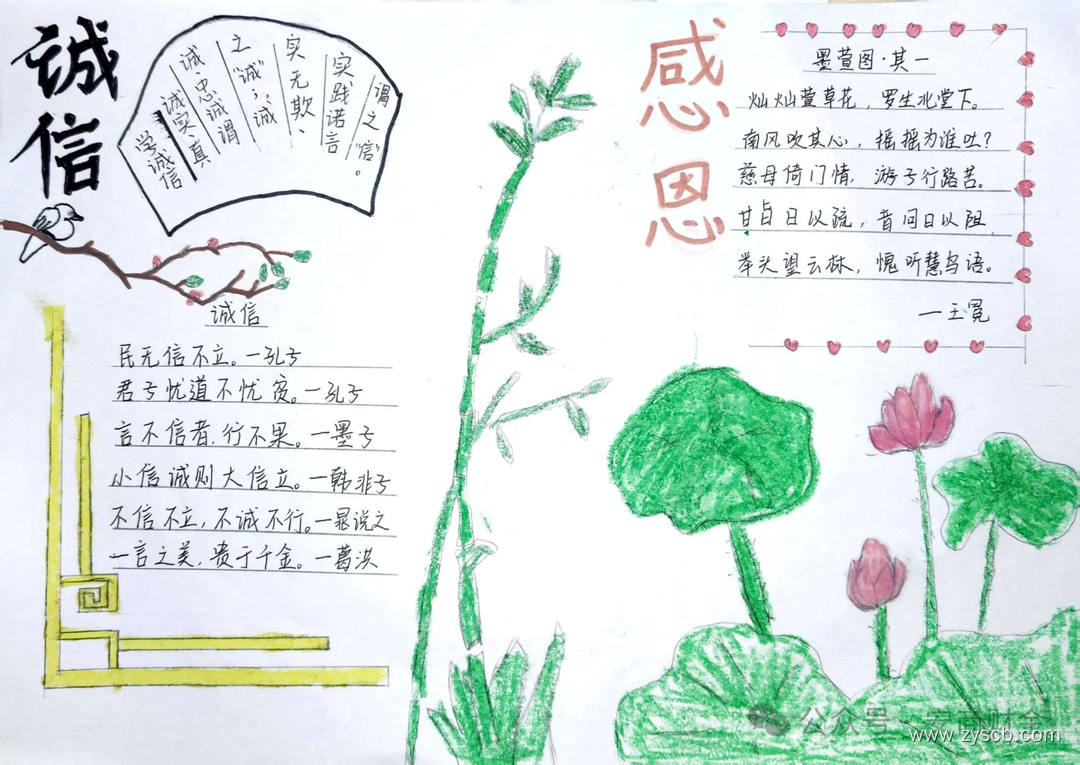 诚信
学诚信
诚实、真
诚忠诚谓
之“诚”；诚
实无欺、
实践诺言
谓之“信”。
诚信
民无信不立。—孔子
君子忧道不忧贫。—孔子
言不信者，行不果。—墨子
小信诚则大信立。—韩非子
不信不立，不诚不行。—晁说之
一言之美，贵于千金。—葛洪
感恩
墨萱图·其一
灿灿萱草花，罗生北堂下。
南风吹其心，摇摇为谁吐？
慈母倚门情，游子行路苦。
甘旨日以疏，音问日以阻。
举头望云林，愧听慧鸟语。
—王冕
公众号
www.zyscb.com